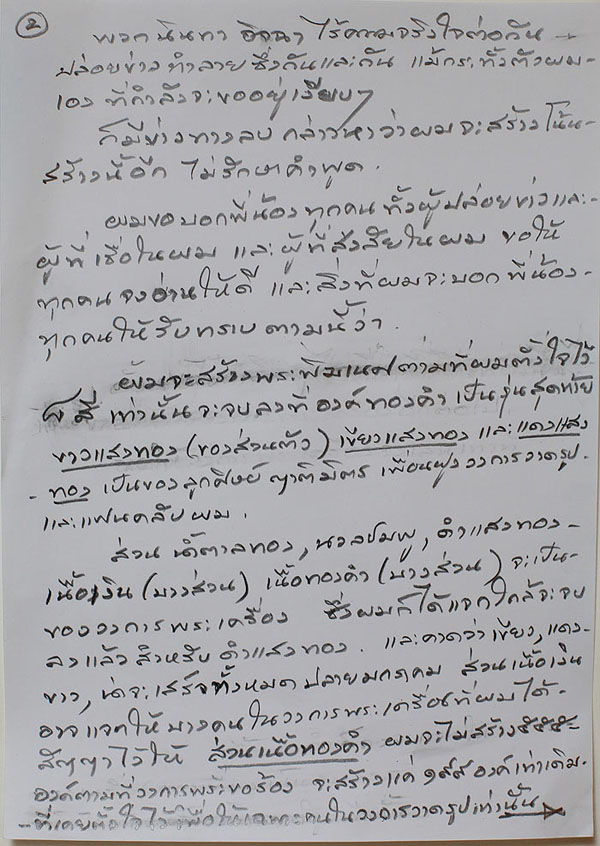 ②
พวก นินทา อิจฉา ไร้ความจริงใจต่อกัน
ปล่อยข่าว ทำลาย ซึ่งกันและกัน แม้กระทั่งตัวผม-
เอง ที่กำลังจะขออยู่เงียบๆ
ก็มีข่าวทางลบ กล่าวหาว่าผมจะสร้างโน้น-
สร้างนี้อีก ไม่รักษาคำพูด.
ผมขอบอกพี่น้องทุกคน ทั้งผู้ปล่อยข่าวและ-
ผู้ที่เชื่อในผม และผู้ที่สงสัยในผม ขอให้
ทุกคนจงอ่านให้ดี และสิ่งที่ผมจะบอกพี่น้อง-
ทุกคนให้รับทราบ ตามนี้ว่า.
ผมจะสร้างพระพิฆเนศตามที่ผมตั้งใจไว้
๘ สี เท่านั้น จะจบลงที่องค์ทองคำ เป็นรุ่นสุดท้าย
ขาวแสงทอง (ของส่วนตัว) เขียวแสงทอง และแดงแสง
- ทอง เป็นของลูกศิษย์ ญาติมิตร เพื่อนฝูง วงการวาดรูป-
และแฟนคลับผม.
ส่วน น้ำตาลทอง, นวลชมพู, ดำแสงทอง-
เนื้อเงิน (บางส่วน) เนื้อทองคำ (บางส่วน) จะเป็น-
ของวงการพระเครื่อง ซึ่งผมก็ได้แจกใกล้จะจบ
ลงแล้ว สำหรับ ดำแสงทอง. และคาดว่าเขียว, แดง-
ขาว, น่าจะเสร็จทั้งหมด ปลายมกราคม ส่วนเนื้อเงิน
อาจแจกให้บางคนในวงการพระเครื่องที่ผมได้-
สัญญาไว้ให้ ส่วนเนื้อทองคำ ผมจะไม่สร้าง๕๕๕-
องค์ตามที่วงการพระขอร้อง จะสร้างแค่ ๑๙๙ องค์เท่าเดิม-
- ที่เคยตั้งใจไว้ เพื่อให้เฉพาะคนในวงการวาดรูปเท่านั้น